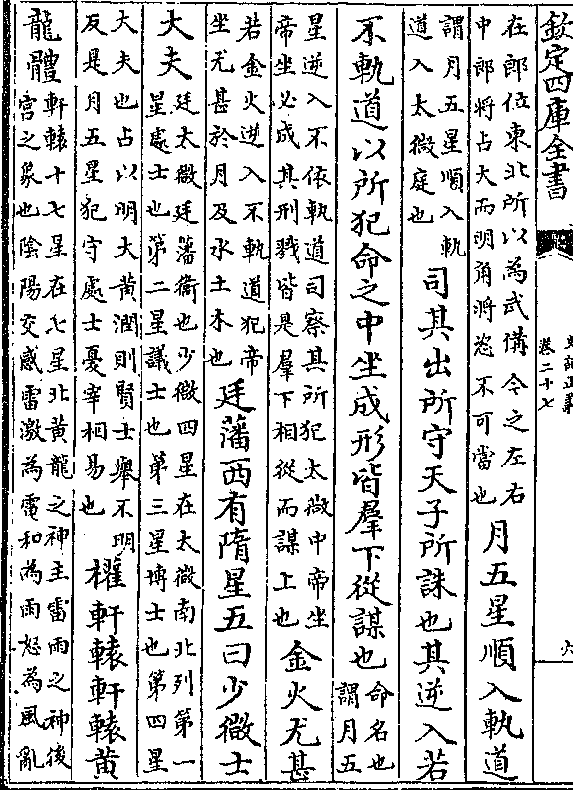 欽定四庫全書
史記正義
卷二十七
六
在郎位東北所以為武備今之左右
中郎將占大而明角將恣不可當也
月五星順入軌道
謂月五星順入軌
道入太微庭也
司其出所守天子所誅也其逆入若
不軌道以所犯命之中坐成形皆羣下從謀也
命名也
謂月五
星逆入不依軌道司察其所犯太微中帝坐
帝坐必成其刑戮皆是羣下相從而謀上也
金火尤甚
若金火逆入不軌道犯帝
坐尤甚於月及水土木也
廷藩西有隋星五曰少微士
大夫
廷太微廷藩衞也少微四星在太微南北列第一
星處士也第二星議士也第三星博士也第四星
大夫也占以明大黄潤則賢士舉不明
反是月五星犯守處士憂宰相易也
權軒轅軒轅黄
龍體
軒轅十七星在七星北黄龍之神主雷雨之神後
宫之象也陰陽交感雷激為電和為雨怒為風亂